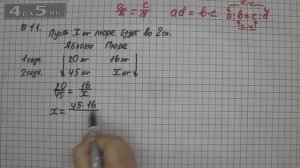 4DA5.RU
a/b = c/d
ad = b·c
a:b = c:d
811. Пусть X кг пюре будет во 2сл.
Яблоки Пюре
1 случ. 20 кг 16 кг
2 случ. 45 кг X кг
20/45 = 16/x
x = 45·16